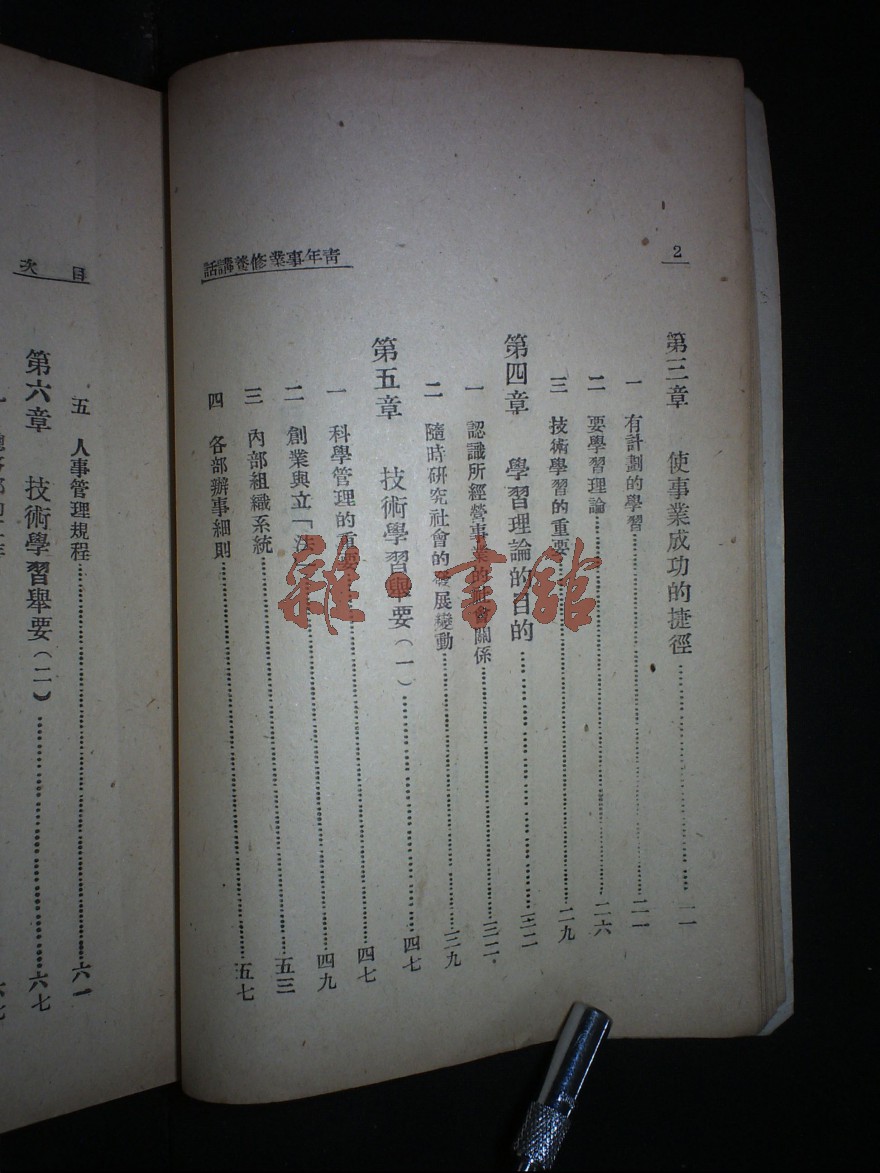 2
青年事業修養講話
第三章 使事業成功的捷徑……二一
一 有計劃的學習……二一
二 要學習理論……二六
三 技術學習的重要……二九
第四章 學習理論的目的……三二
一 認識所經營事業的社會關係……三二
二 隨時研究社會的發展變動……三九
第五章 技術學習舉要(一)……四七
一 科學管理的重要……四七
二 創業與立「法」……四九
三 內部組織系統……五三
四 各部辦事細則……五七
目次
五 人事管理規程……六一
第六章 技術學習舉要(二)……六七
雜·書館